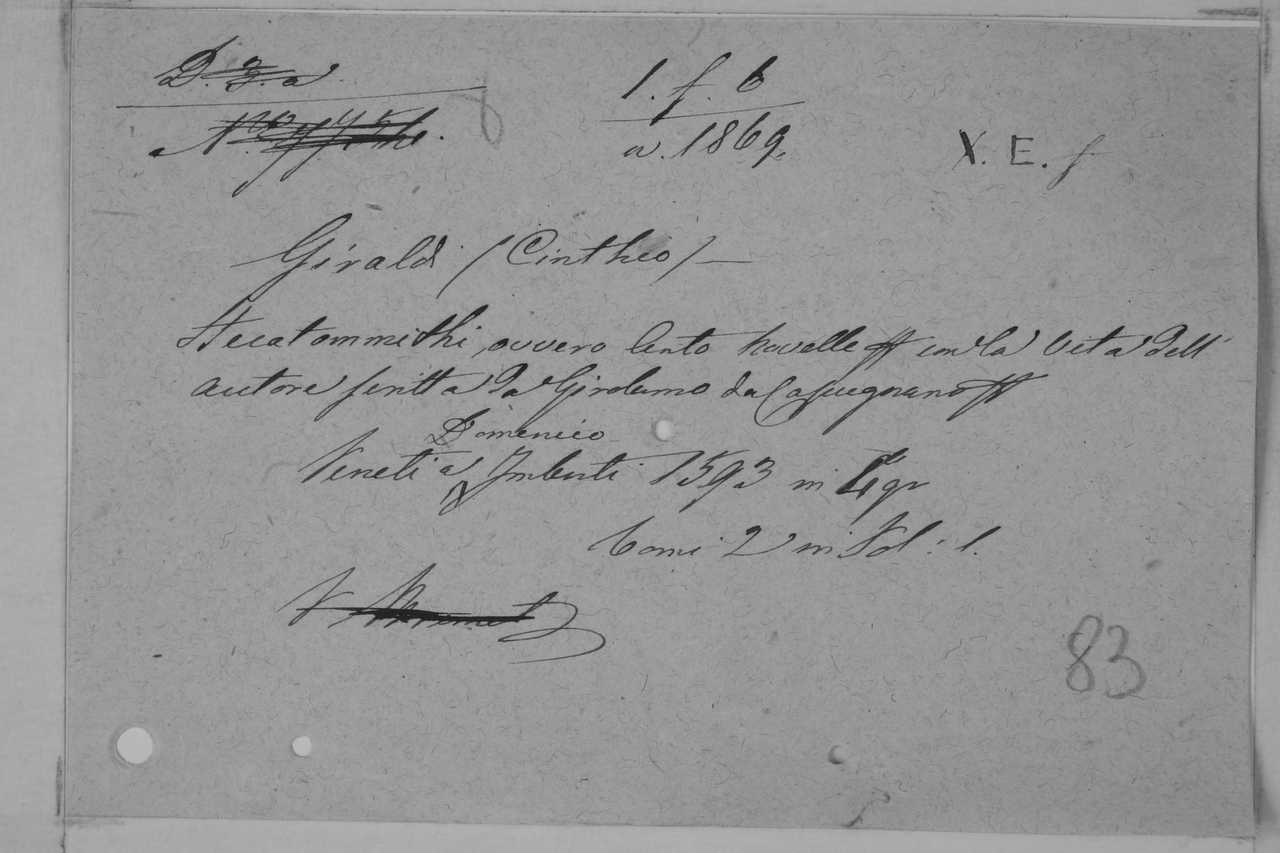 D. 3. a
1. f. 6
a. 1869.
X. E. f
Giraldi (Cinthio) —
Hecatommithi, ovvero Cento Novelle con la Vita dell'
autore scritta da Girolamo da
Domenico
Venetia Imberti 1593 in 4 gr
Tomi 2 in Vol: 1.
83